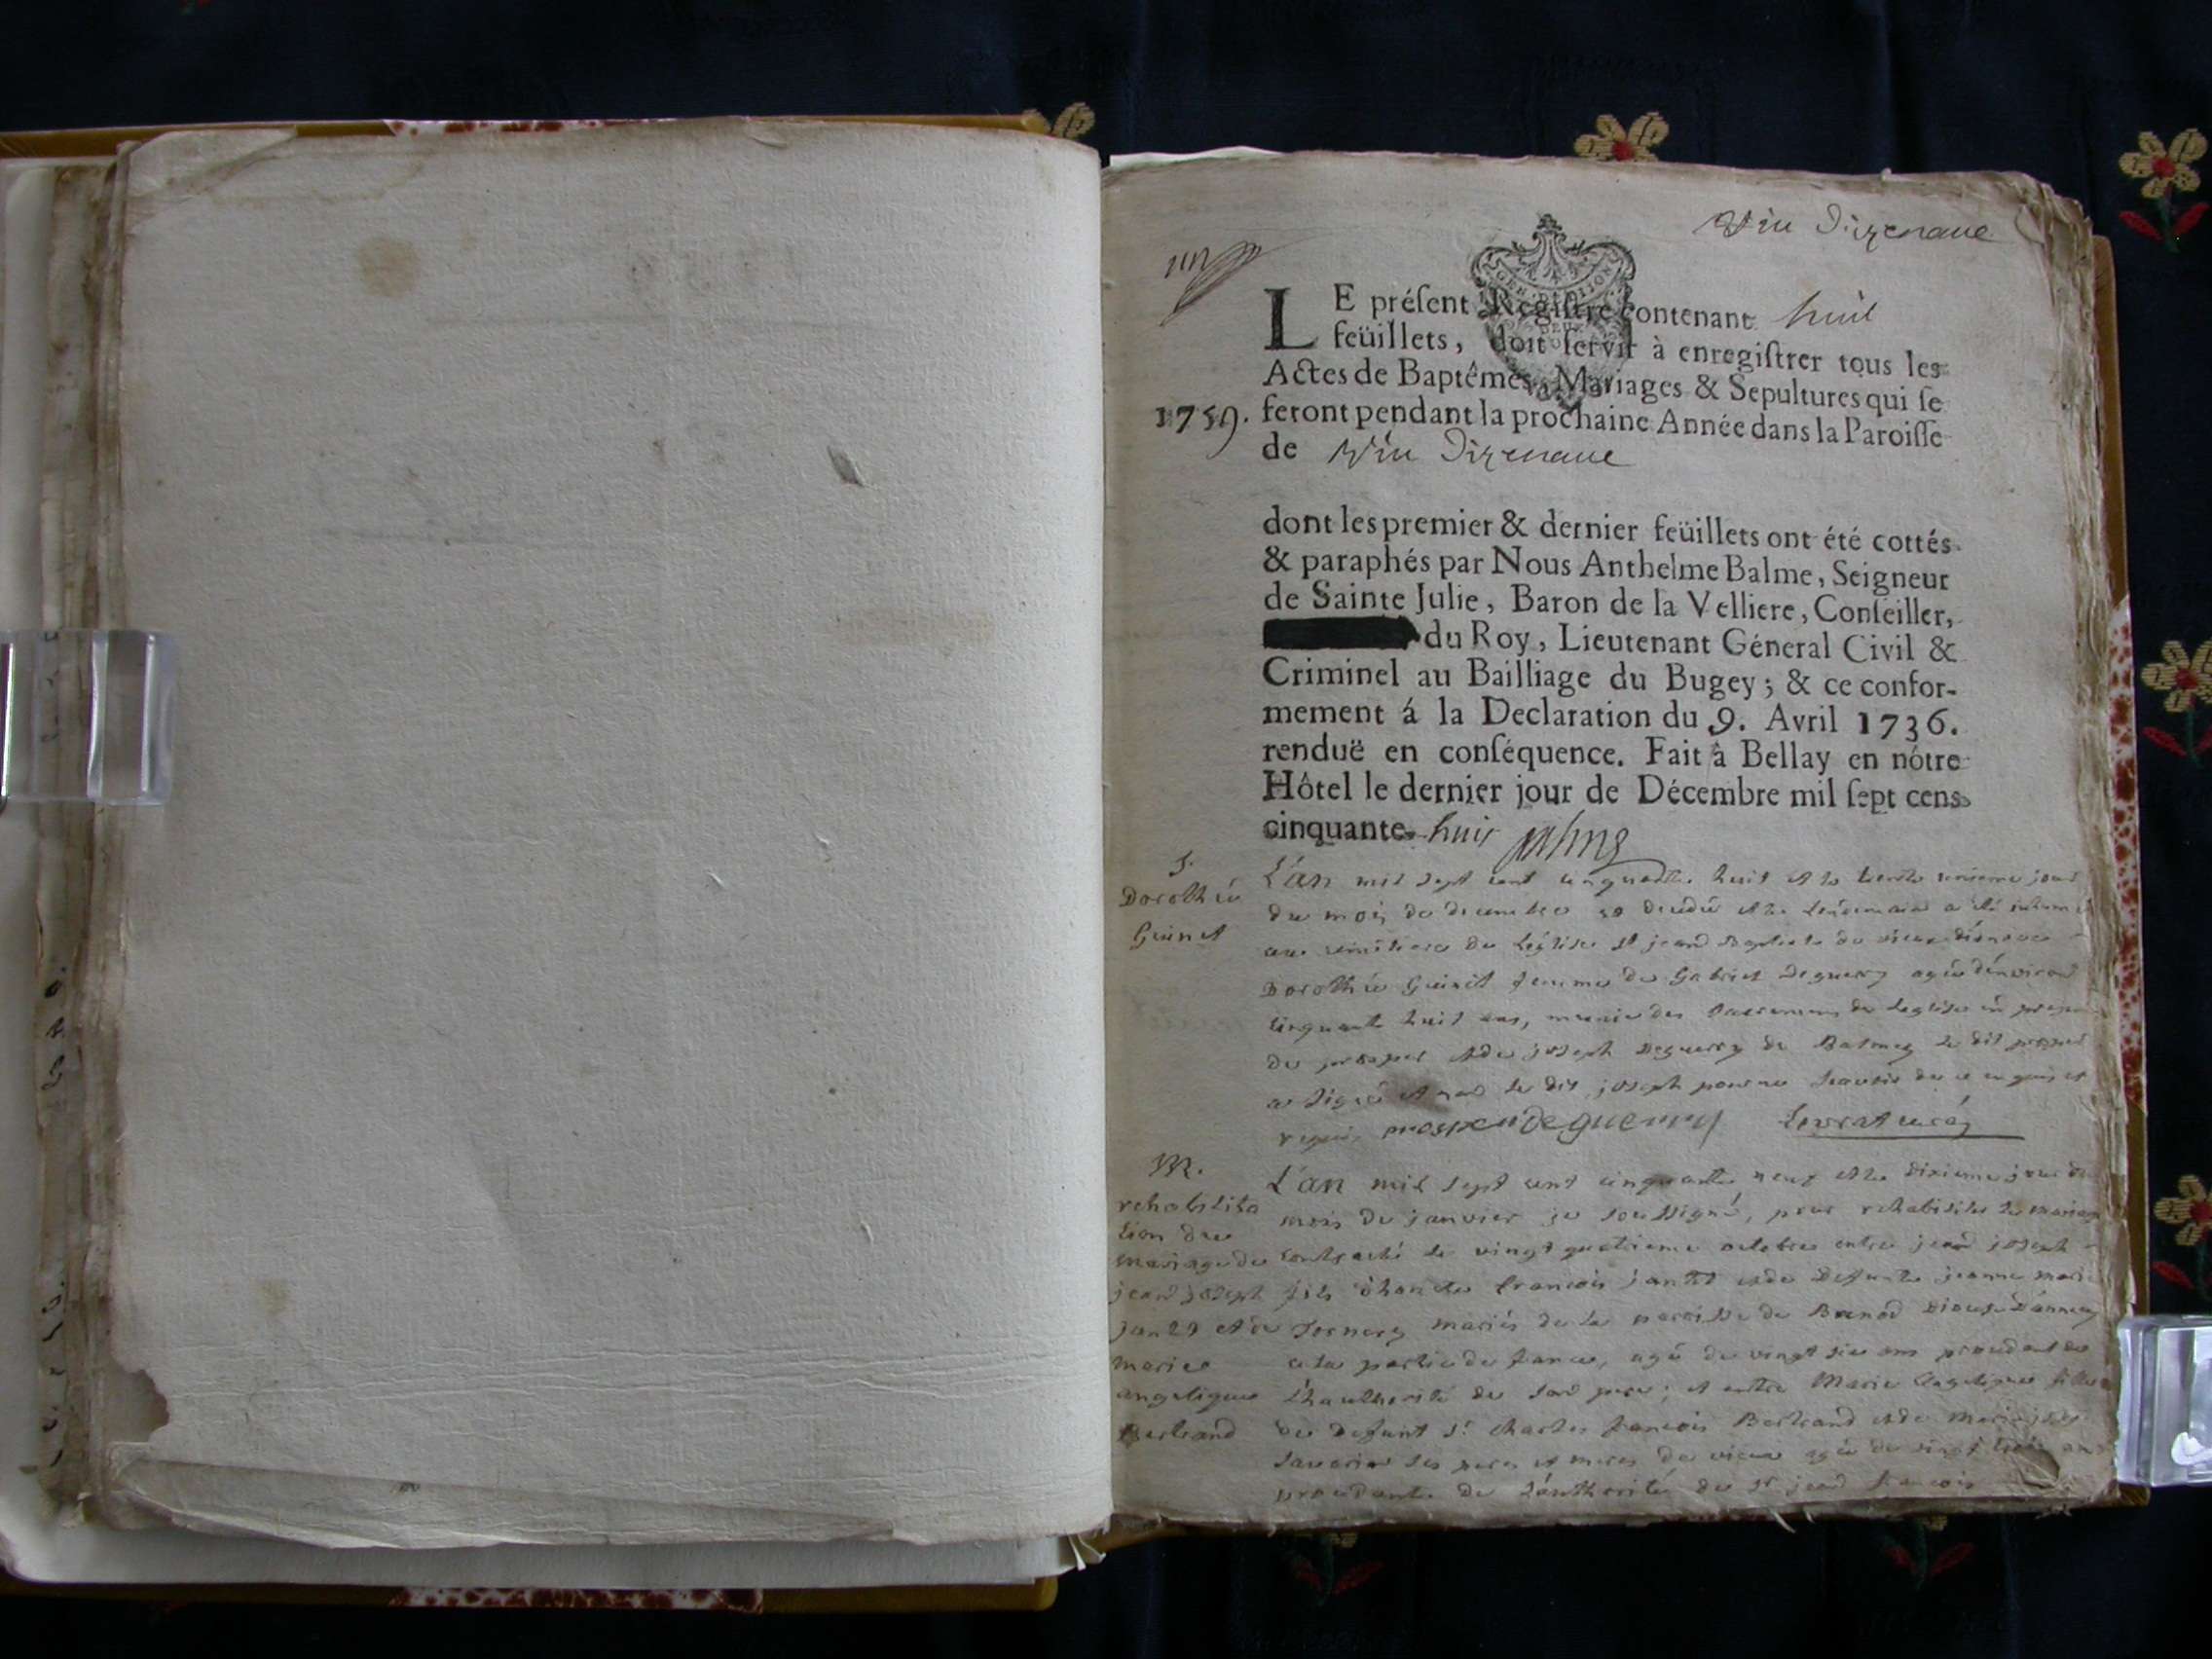 Vieu Dizenave
un
GEN. DE DIJON
DEUX
LE préſent Regiſtre contenant huit
feüillets, doit ſervir à enregiſtrer tous les
Actes de Baptêmes, Mariages & Sepultures qui ſe
1759. feront pendant la prochaine Année dans la Paroiſſe
de Vieu Dizenave
dont les premier & dernier feüillets ont été cottés
& paraphés par Nous Anthelme Balme, Seigneur
de Sainte Julie, Baron de la Velliere, Conſeiller,
du Roy, Lieutenant Géneral Civil &
Criminel au Bailliage du Bugey; & ce confor-
mement á la Declaration du 9. Avril 1736.
renduë en conſéquence. Fait à Bellay en nôtre
Hôtel le dernier jour de Décembre mil ſept cens
cinquante-huit
S.
Dorothée
Guinet
L'an mil sept cent cinquante huit et le trente unieme jour
du mois de decembre est decedée et le lendemain a été inhumée
au cimetiere de Léglise st jean Baptiste de vieu
Dorothée Guinet femme de Gabriel Deguerry agée d'environ
cinquante huit ans, munie des sacremens de Leglise en presence
de prosper et de joseph Deguerry de Balmey le dit prosper
a signé et non le dit joseph pour ne scavoir de ce enquis et
requis prosper deguerry Levrat curé
M.
rehabilita
tion du
mariage de
jean joseph
jantet et de
marie
angelique
Bertrand
L'an mil sept cent cinquante neuf et le dixieme jour du
mois de janvier je soussigné, pour rehabiliter le mariage
contracté le vingt quatrieme octobre entre jean joseph
fils d'honete francois jantet et de defunte jeanne marie
mariés de la paroisse de Brenod Diocese d'annecy
a la partie de france, agé de vingt six ans procedant de
l'authorité de son pere; et entre Marie Angelique fille
de defunt sr. charles francois Bertrand et de marie
ses peres et meres de vieu agée de vingt trois ans
procedante de l'authorité de sr jean francois